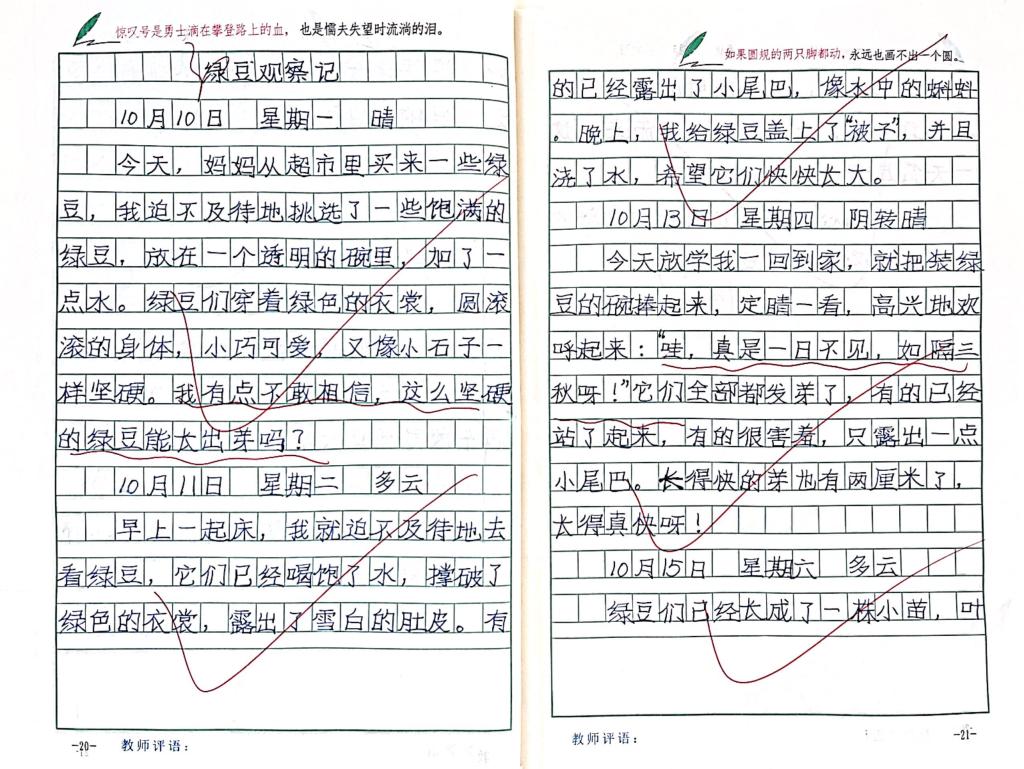 惊叹号是勇士滴在攀登路上的血，也是懦夫失望时流淌的泪。
绿豆观察记
10月10日 星期一 晴
今天，妈妈从超市里买来一些绿
豆，我迫不及待地挑选了一些饱满的
绿豆，放在一个透明的碗里，加了一
点水。绿豆们穿着绿色的衣裳，圆滚
滚的身体，小巧可爱，又像小石子一
样坚硬。我有点不敢相信，这么坚硬
的绿豆能长出芽吗？
10月11日 星期二 多云
早上一起床，我就迫不及待地去
看绿豆，它们已经喝饱了水，撑破了
绿色的衣裳，露出了雪白的肚皮。有
-20- 教师评语：
如果圆规的两只脚都动，永远也画不出一个圆。
的已经露出了小尾巴，像水中的蝌蚪
。晚上，我给绿豆盖上了“被子”，并且
浇了水，希望它们快快长大。
10月13日 星期四 阴转晴
今天放学我一回到家，就把装绿
豆的碗捧起来，定睛一看，高兴地欢
呼起来：“哇，真是一日不见，如隔三
秋呀！”它们全部都发芽了，有的已经
站了起来，有的很害羞，只露出一点
小尾巴。长得快的芽也有两厘米了，
长得真快呀！
10月15日 星期六 多云
绿豆们已经长成了一株小苗，叶
教师评语： -21-